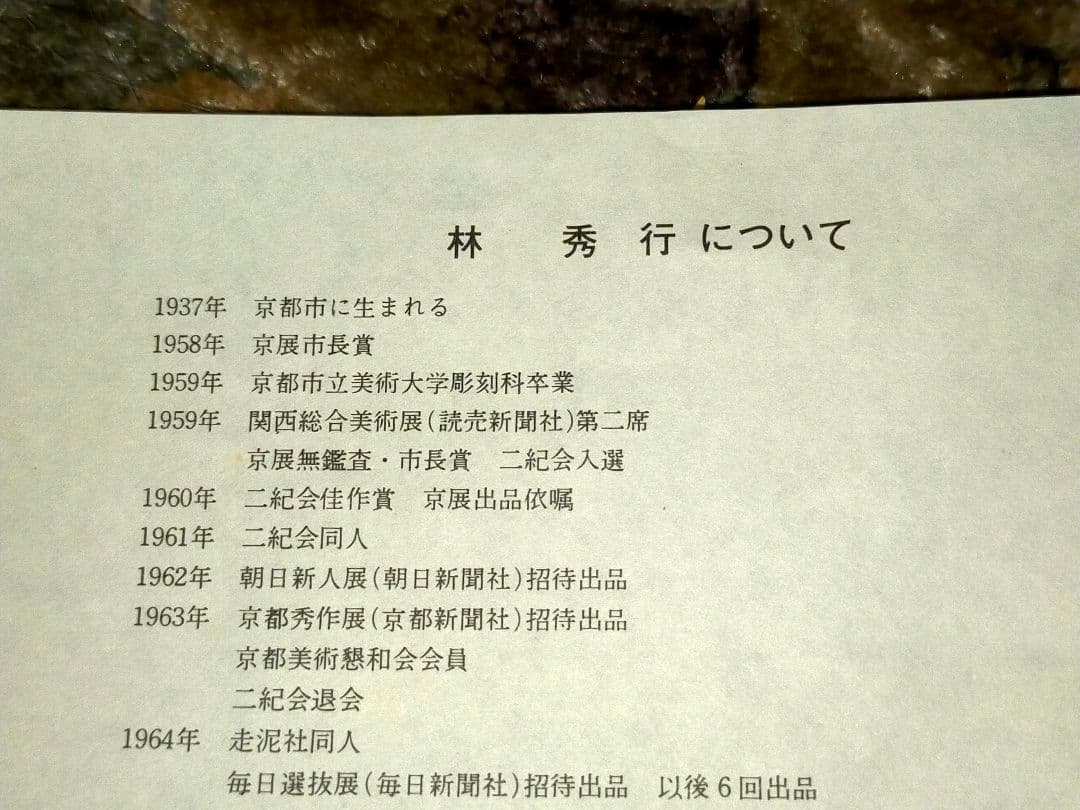 林 秀 行 について
1937年 京都市に生まれる
1958年 京展市長賞
1959年 京都市立美術大学彫刻科卒業
1959年 関西総合美術展(読売新聞社)第二席
京展無鑑査・市長賞 二紀会入選
1960年 二紀会佳作賞 京展出品依嘱
1961年 二紀会同人
1962年 朝日新人展(朝日新聞社)招待出品
1963年 京都秀作展(京都新聞社)招待出品
京都美術懇和会会員
二紀会退会
1964年 走泥社同人
毎日選抜展(毎日新聞社)招待出品 以後6回出品